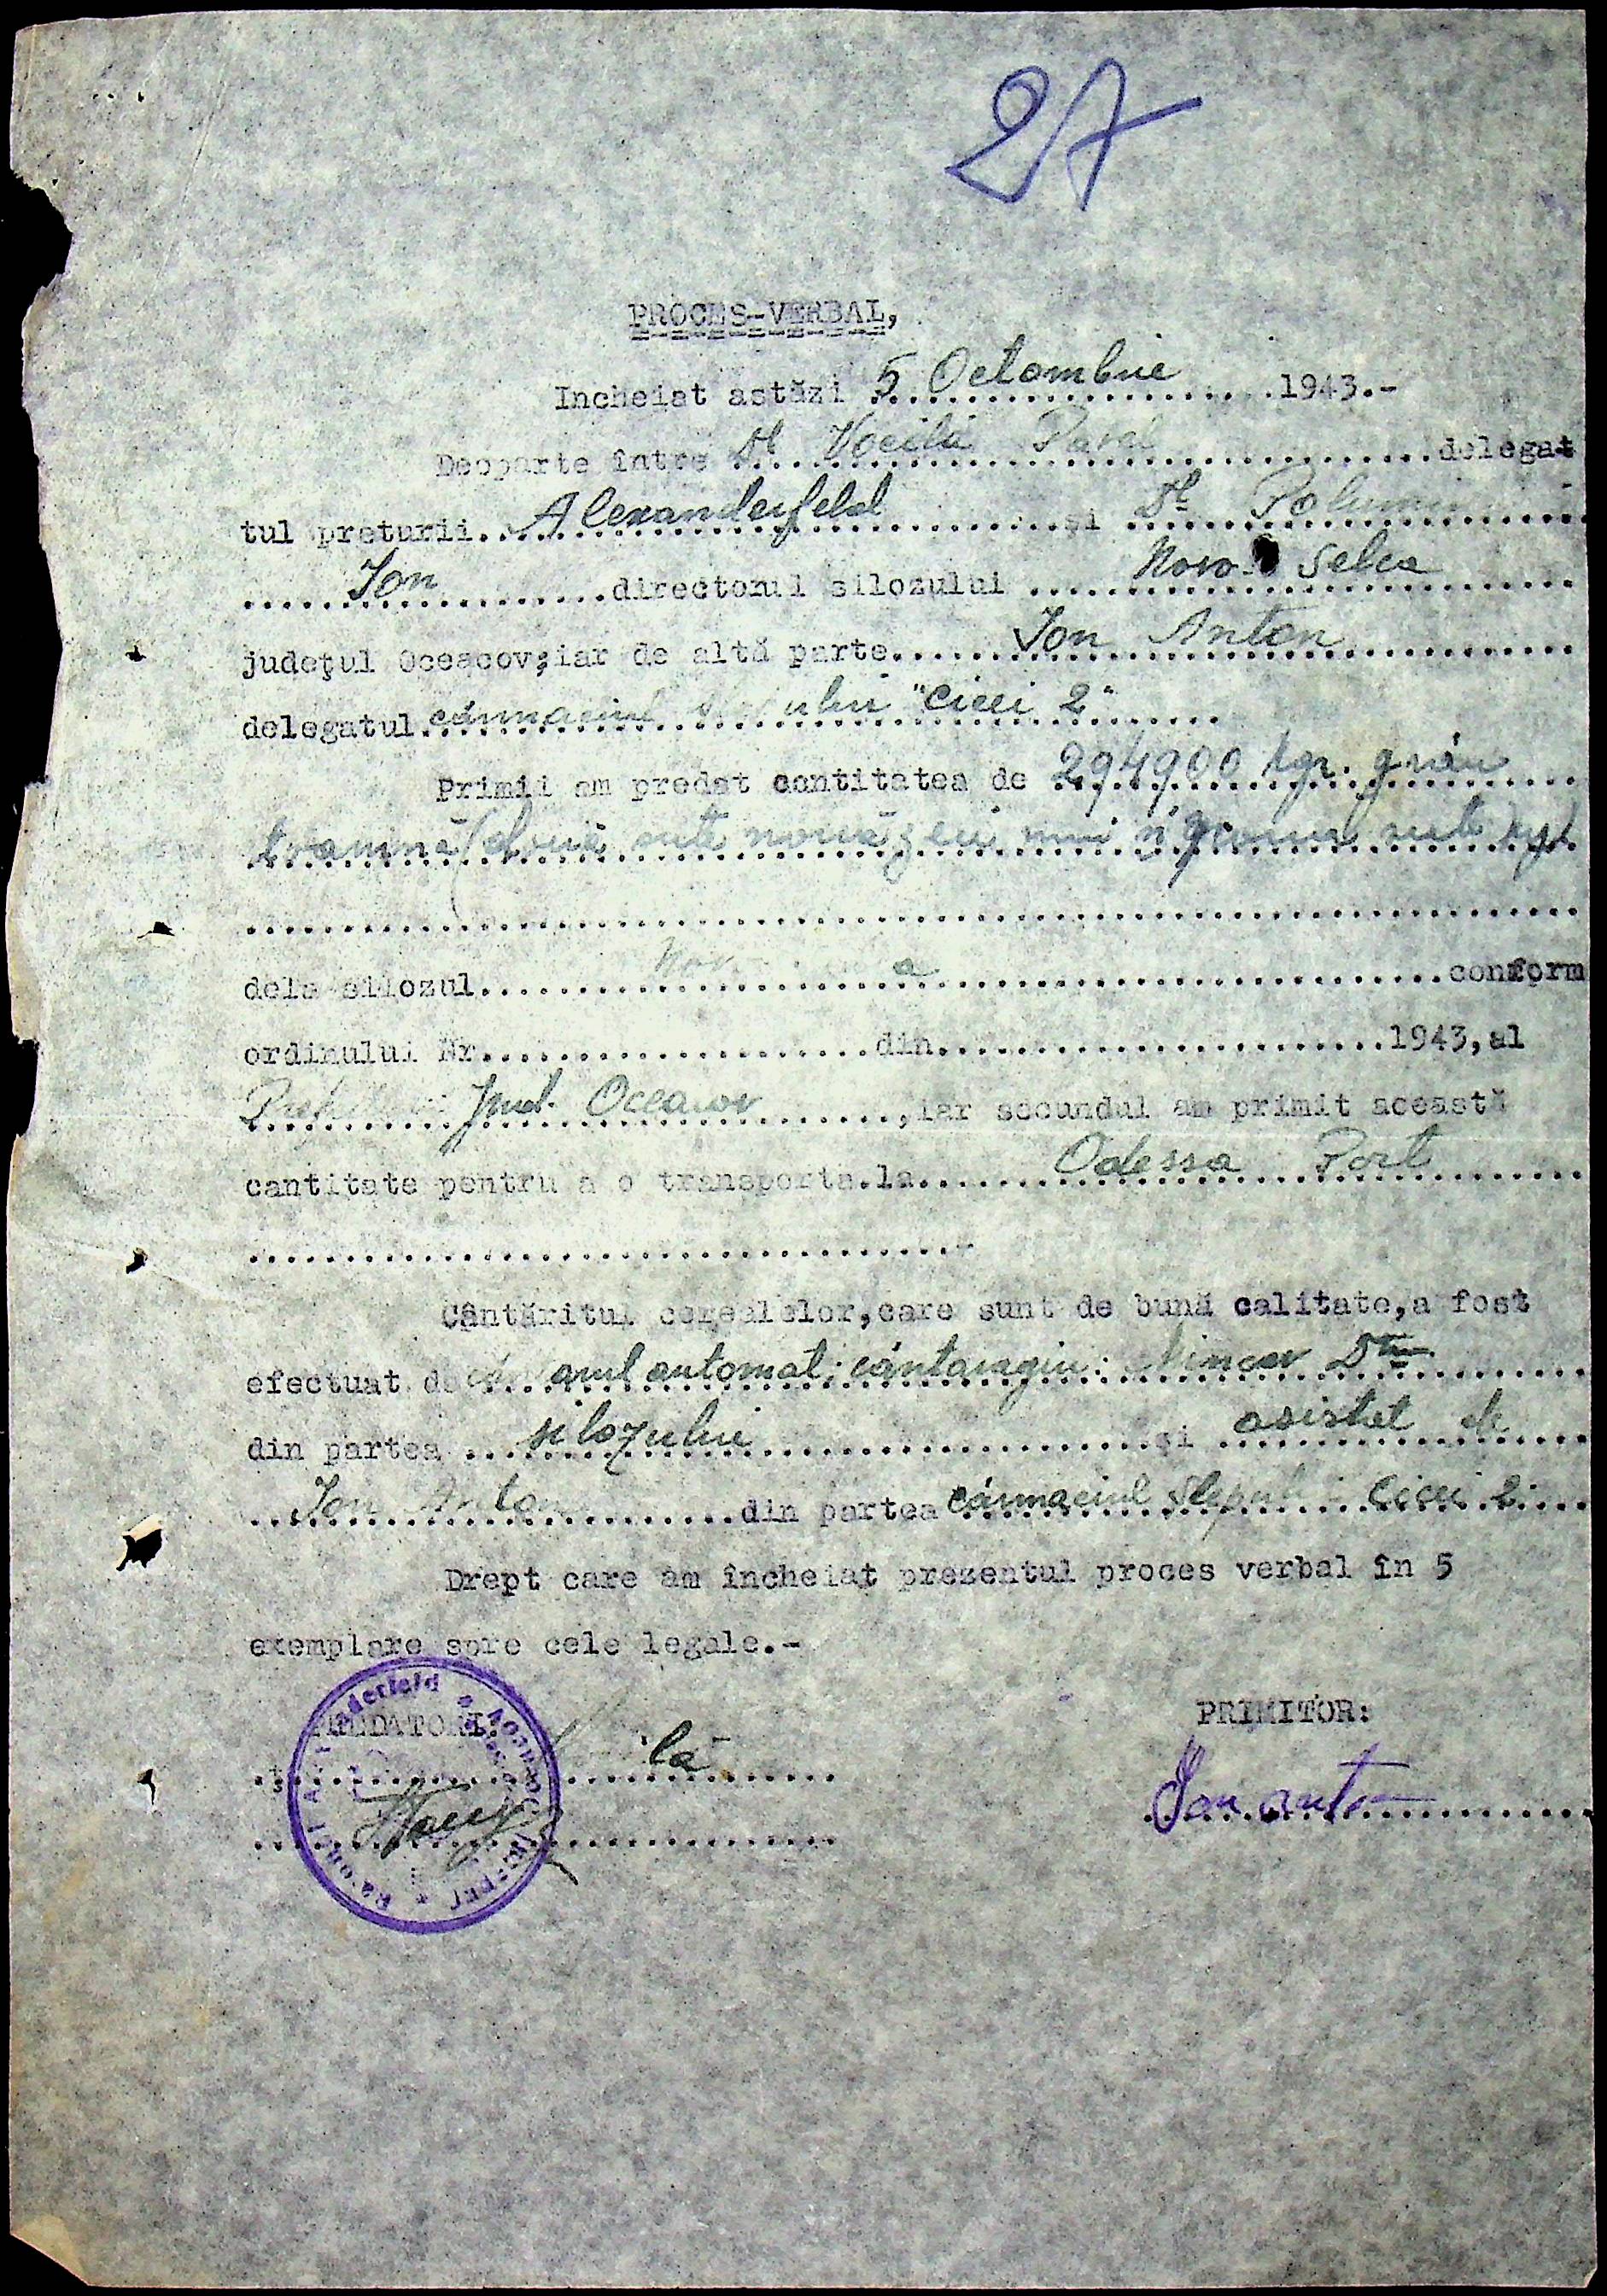 27
PROCES-VERBAL,
Incheiat astăzi 5 Octombrie 1943.-
Deoparte între Dl Vocilă Pavel delegat
tul preturii Alexanderfeld și Dl
Ion directorul silozului Novo Selca
județul Oceacov;iar de altă parte Ion Anton
delegatul cârmaciul "Cicei 2"
Primii am predat cantitatea de 294900 kgr. grâu
toamnă (două sute nouăzeci mii sute kg)
dela silozul conform
ordinului Nr. din 1943,al
Jud. Oceacov ,iar secundul am primit această
cantitate pentru a o transporta.la Odessa Port
Cântăritul cerealelor,care sunt de bună calitate,a fost
efectuat de automat; cântaragiu:
din partea silozului și asistat de
Ion Anton din partea cârmaciul Șlepului Cicei 2
Drept care am încheiat prezentul proces verbal în 5
exemplare spre cele legale.-
PREDATORI: PRIMITOR:
Ion Anton